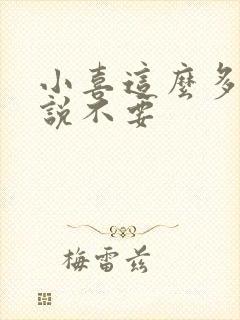 小喜這麼多
說不要
梅雷茲